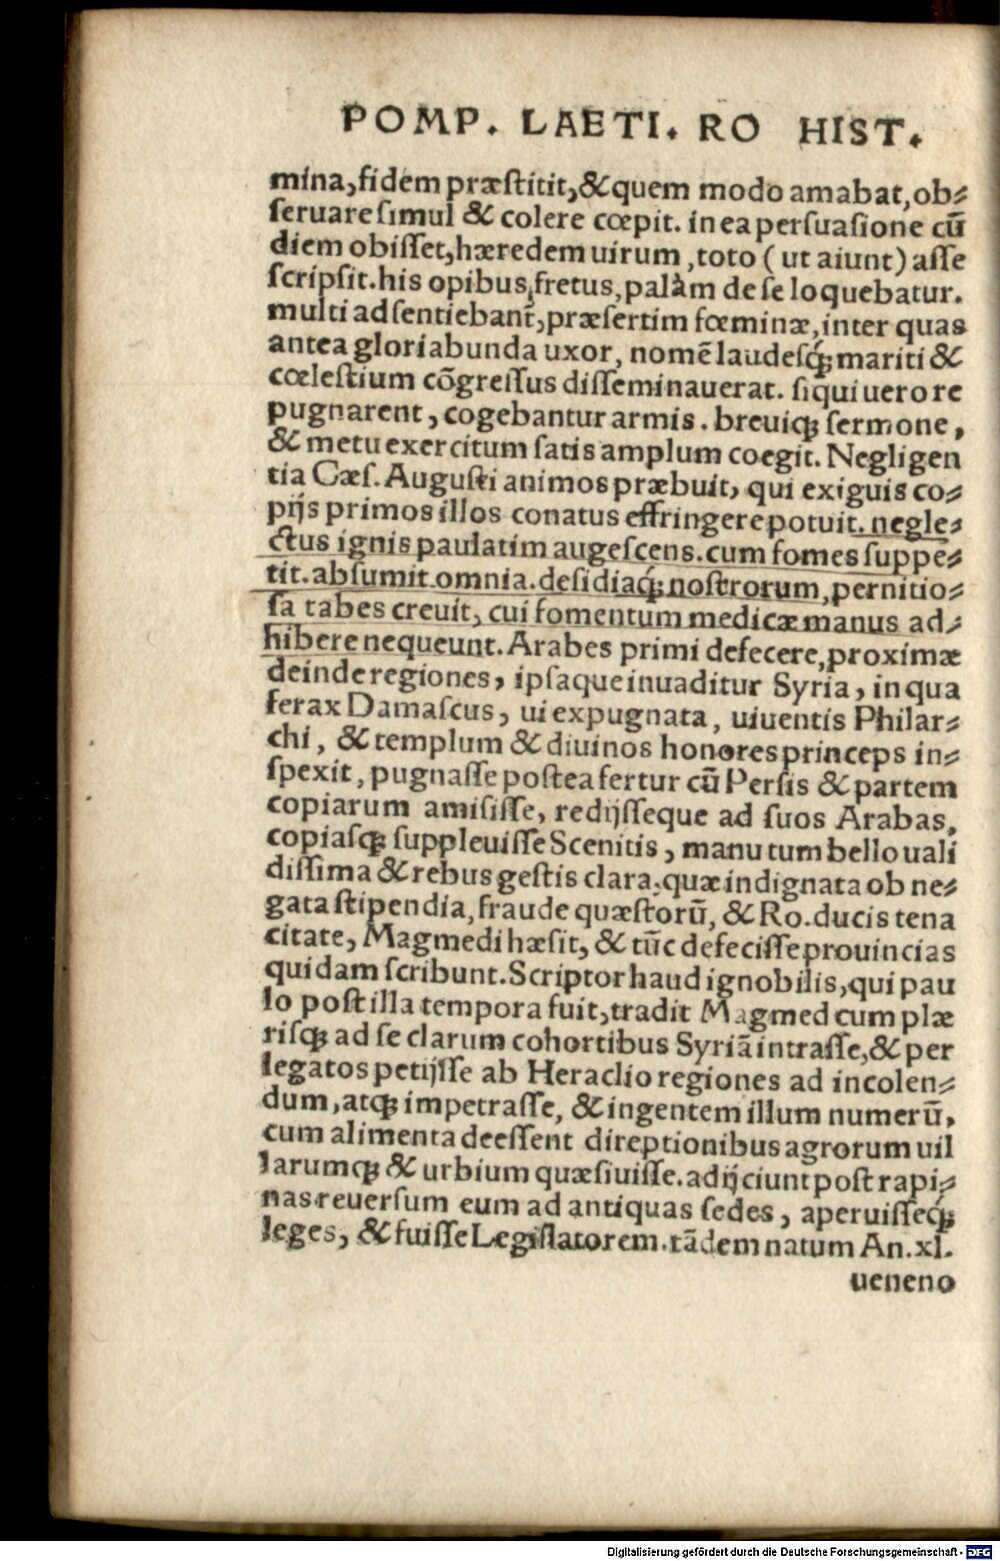 POMP. LAETI. RO HIST.
mina,fidem præſtitit,&quem modo amabat,ob⸗
ſeruare ſimul & colere cœpit. in ea perſuaſione cū
diem obiſſet,hæredem uirum ,toto ( ut aiunt) aſſe
ſcripſit.his opibus,fretus,palàm de ſe loquebatur.
multi adſentiebant̄,præſertim fœminæ,inter quas
antea gloriabunda uxor, nomē laudeſq́ꝫ mariti &
cœleſtium cōgreſſus diſſeminauerat. ſi qui uero re
pugnarent , cogebantur armis . breuiqꝫ ſermone ,
& metu exercitum ſatis amplum coegit. Negligen
tia Cæſ. Auguſti animos præbuit, qui exiguis co⸗
pijs primos illos conatus effringere potuit. negle⸗
ctus ignis paulatim augeſcens.cum fomes ſuppe⸗
tit.abſumit omnia.deſidiaq́ꝫ noſtrorum,pernitio⸗
ſa tabes creuit, cui fomentum medicæ manus ad⸗
hibere nequeunt. Arabes primi defecere,proximæ
deinde regiones, ipſaque inuaditur Syria, in qua
ferax Damaſcus, ui expugnata, uiuentis Philar⸗
chi, & templum & diuinos honores princeps in⸗
ſpexit, pugnaſſe poſtea fertur cū Perſis & partem
copiarum amiſiſſe, redijſſeque ad ſuos Arabas,
copiaſqꝫ ſuppleuiſſe Scenitis, manu tum bello uali
diſſima & rebus geſtis clara,quæ indignata ob ne⸗
gata ſtipendia,fraude quæſtorū, & Ro.ducis tena
citate, Magmedi hæſit, & tūc defeciſſe prouincias
quidam ſcribunt.Scriptor haud ignobilis,qui pau
lo poſt illa tempora fuit,tradit Magmed cum plæ
riſqꝫ ad ſe clarum cohortibus Syriā intraſſe,& per
legatos petijſſe ab Heraclio regiones ad incolen⸗
dum,atqꝫ impetraſſe, & ingentem illum numerū,
cum alimenta deeſſent direptionibus agrorum uil
larumqꝫ & urbium quæſiuiſſe.adijciunt poſt rapi⸗
nas reuerſum eum ad antiquas ſedes, aperuiſſeq́ꝫ
leges, & fuiſſe Legiſlatorem.tādem natum An.xl.
ueneno
Digitalisierung gefördert durch die Deutsche Forschungsgemeinschaft - DFG